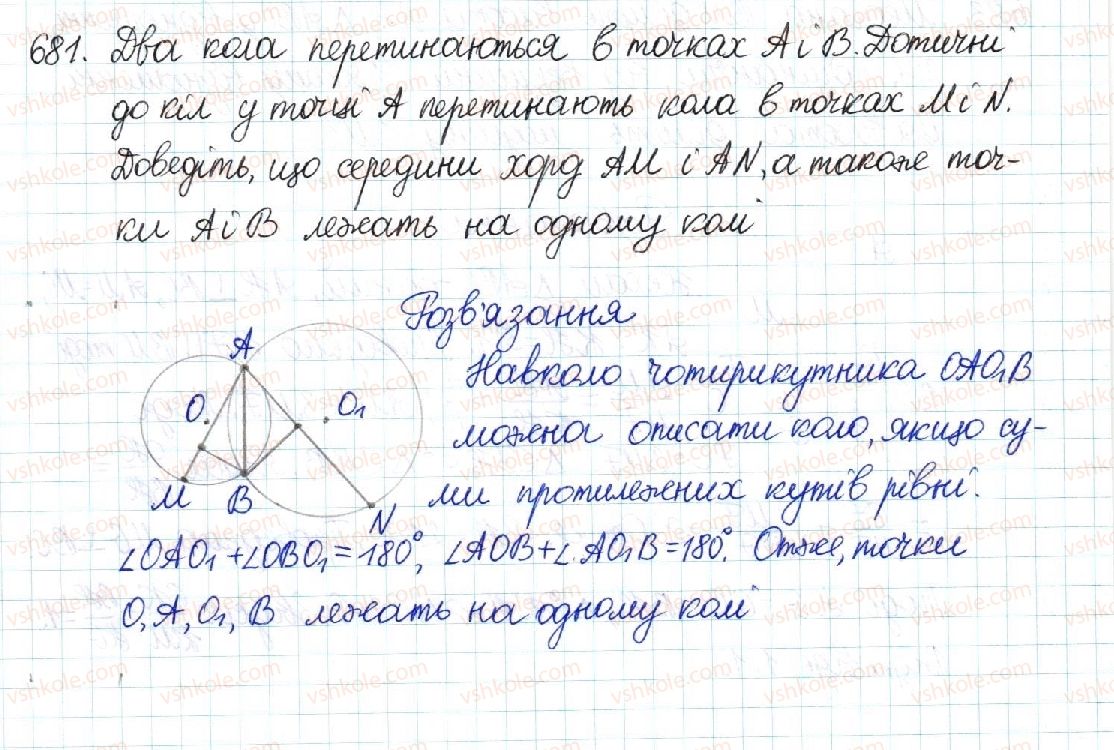 681. Два кола перетинаються в точках A і B. Дотичні
до кіл у точці A перетинають кола в точках M і N.
Доведіть, що середини хорд AM і AN, а також точ-
ки A і B лежать на одному колі
Розв'язання
A
O
O₁
M
B
N
Навколо чотирикутника OAO₁B
можна описати коло, якщо су-
ми протилежних кутів рівні.
∠OAO₁ + ∠OBO₁ = 180°, ∠AOB + ∠AO₁B = 180°. Отже, точки
O, A, O₁, B лежать на одному колі